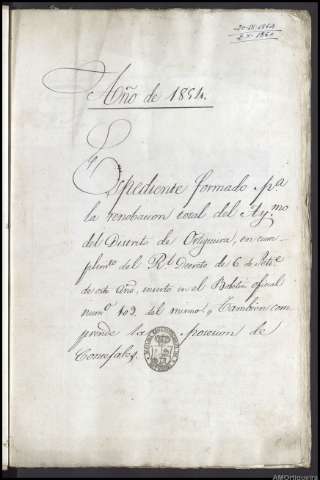 20-IX-1854
2-X-1860
Año de 1854.
Espediente formado p.ª
la renobacion total del Ay.mo
del Distrito de Ortigueira, en cum-
plim.to del R.l Decreto de 6 de Sete.e
de este Año, inserto en el Boletin oficial
num.º 102 del mismo, y Tambien com
prende la posesion de
Concejales.
AMOrtigueira